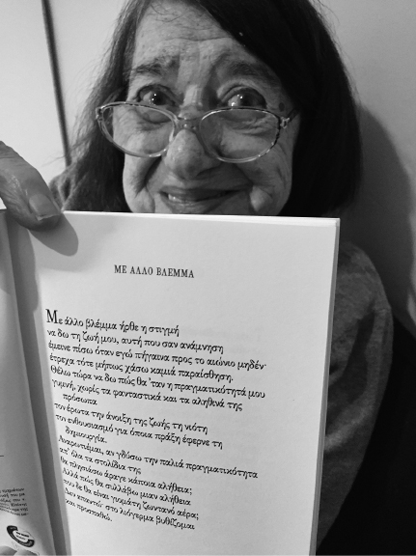 ΜΕ ΑΛΛΟ ΒΛΕΜΜΑ
Με άλλο βλέμμα ήρθε η στιγμή
να δω τη ζωή μου, αυτή που σαν ανάμνηση
έμεινε πίσω όταν εγώ πήγαινα προς το αιώνιο μηδέν·
έτρεχα τότε μήπως χάσω καμιά παραίσθηση.
Θέλω τώρα να δω πώς θα 'ταν η πραγματικότητά μου
γυμνή, χωρίς τα φανταστικά και τα αληθινά της
πρόσωπα
τον έρωτα την άνοιξη της ζωής τη νιότη
τον ενθουσιασμό για όποια πράξη έφερνε τη
δημιουργία.
Αναρωτιέμαι, αν γδύσω την παλιά πραγματικότητα
απ' όλα τα στολίδια της
θα πλησιάσω άραγε κάποια αλήθεια;
Αλλά πώς θα συλλάβω μιαν αλήθεια
που δε θα είναι γιομάτη ζωντανό αέρα;
Δεν απαντώ· στο λιόγερμα βυθίζομαι
και προσπαθώ.